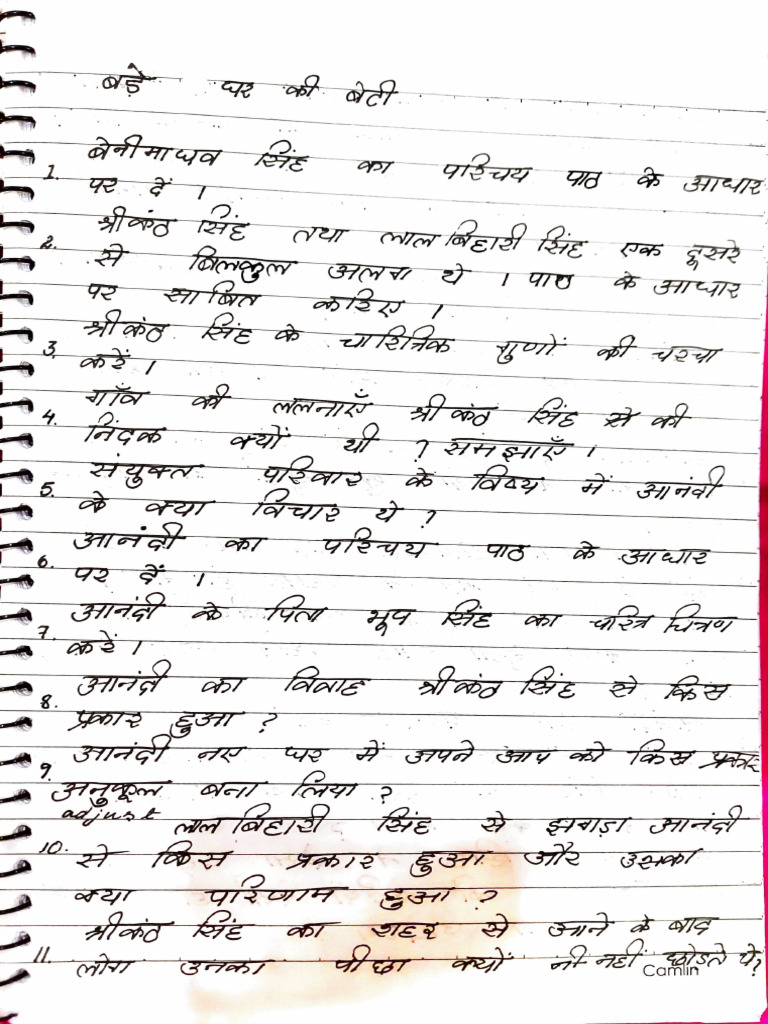 बड़े घर की बेटी
1. बेनीमाधव सिंह का परिचय पाठ के आधार
पर दें ।
2. श्रीकंठ सिंह तथा लाल बिहारी सिंह एक दूसरे
से बिलकुल अलग थे । पाठ के आधार
पर साबित करिए ।
3. श्रीकंठ सिंह के चारित्रिक गुणों की चरचा
करें ।
4. गाँव की ललनाएँ श्रीकंठ सिंह से की
निंदक क्यों थी ? समझाएँ ।
5. संयुक्त परिवार के विषय में आनंदी
के क्या विचार थे ?
6. आनंदी का परिचय पाठ के आधार
पर दें ।
7. आनंदी के पिता भूप सिंह का चरित्र चित्रण
करें ।
8. आनंदी का विवाह श्रीकंठ सिंह से किस
प्रकार हुआ ?
9. आनंदी नए घर में अपने आप को किस प्रकार
अनुकूल बना लिया ?
adjust
10. लाल बिहारी सिंह से झगड़ा आनंदी
से किस प्रकार हुआ और उसका
क्या परिणाम हुआ ?
11. श्रीकंठ सिंह का शहर से आने के बाद
लोग उनका पीछा क्यों नी नहीं छोडते थे?
Camlin